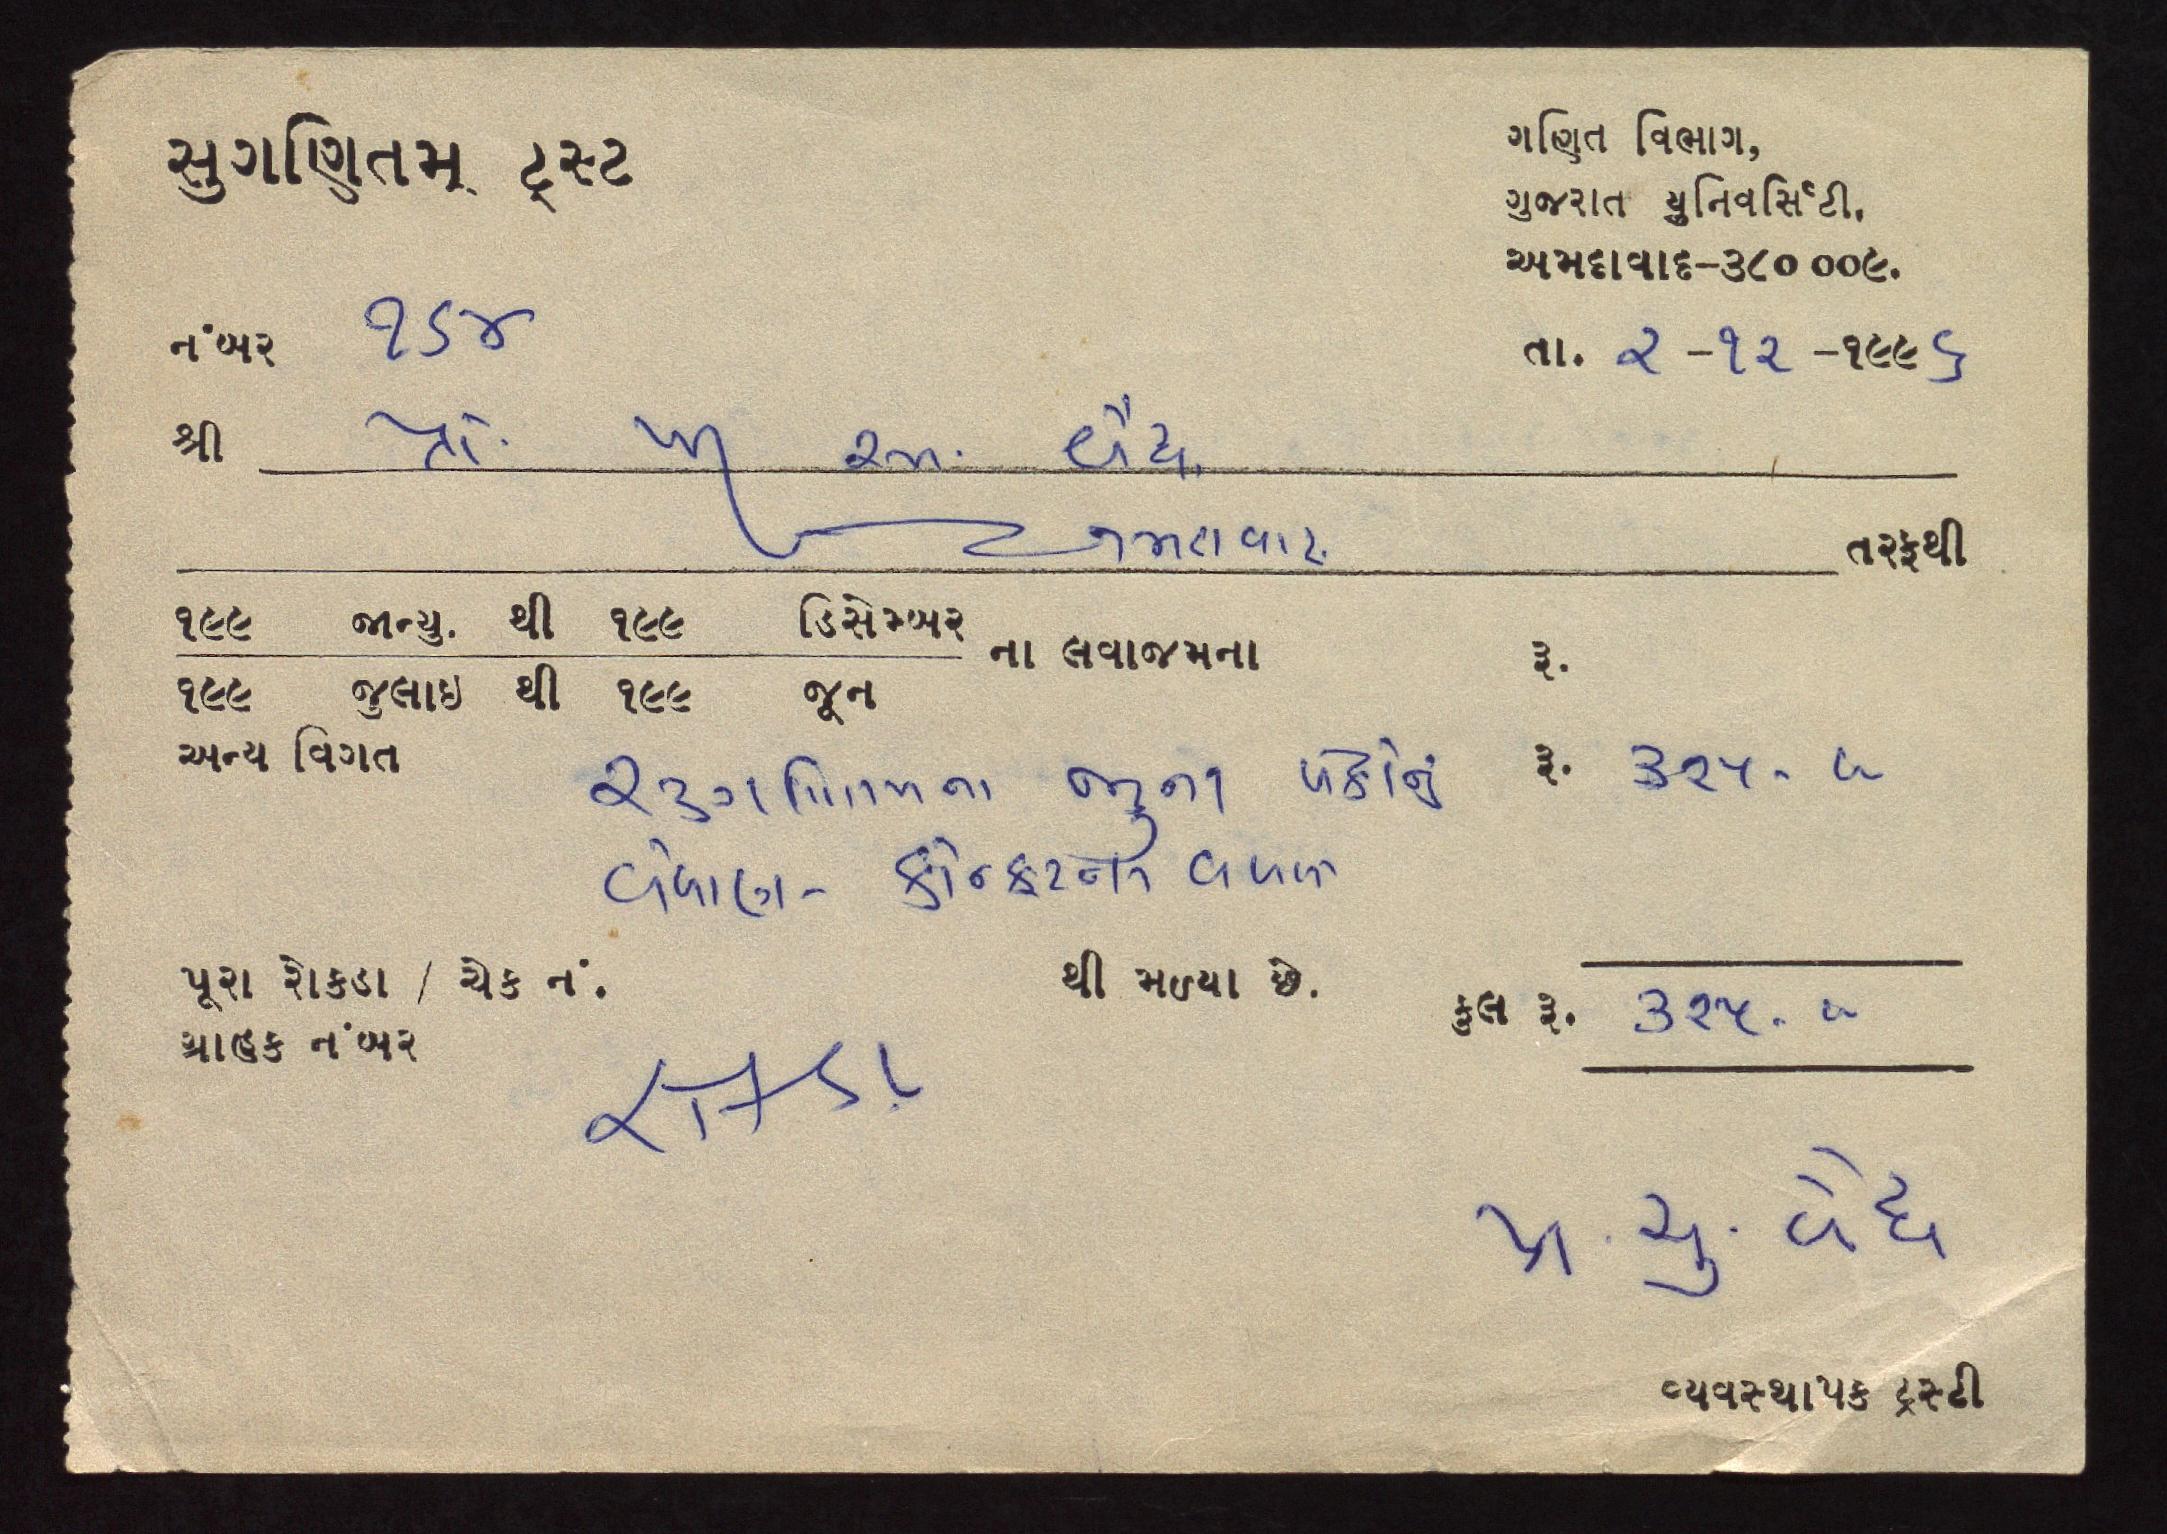 સુગણિતમ્ ટ્રસ્ટ
ગણિત વિભાગ,
ગુજરાત યુનિવર્સિટી,
અમદાવાદ-૩૮૦ ૦૦૯.
નંબર ૧૬૪
તા. ૨ -૧૨ -૧૯૯૬
શ્રી પ્રો. એમ. વૈદ્ય
અમદાવાદ તરફથી
૧૯૯ જાન્યુ. થી ૧૯૯ ડિસેમ્બર
ના લવાજમના રૂ.
૧૯૯ જુલાઇ થી ૧૯૯ જૂન
અન્ય વિગત સુગણિતમના જુના અંકોનું રૂ. ૩૨૫.૦૦
વેચાણ- કોન્ફરન્સ વખતે
પૂરા રોકડા / ચેક નં. થી મળ્યા છે.
કુલ રૂ. ૩૨૫.૦૦
ગ્રાહક નંબર
રોકડા
અ. યુ. વૈદ્ય
વ્યવસ્થાપક ટ્રસ્ટી